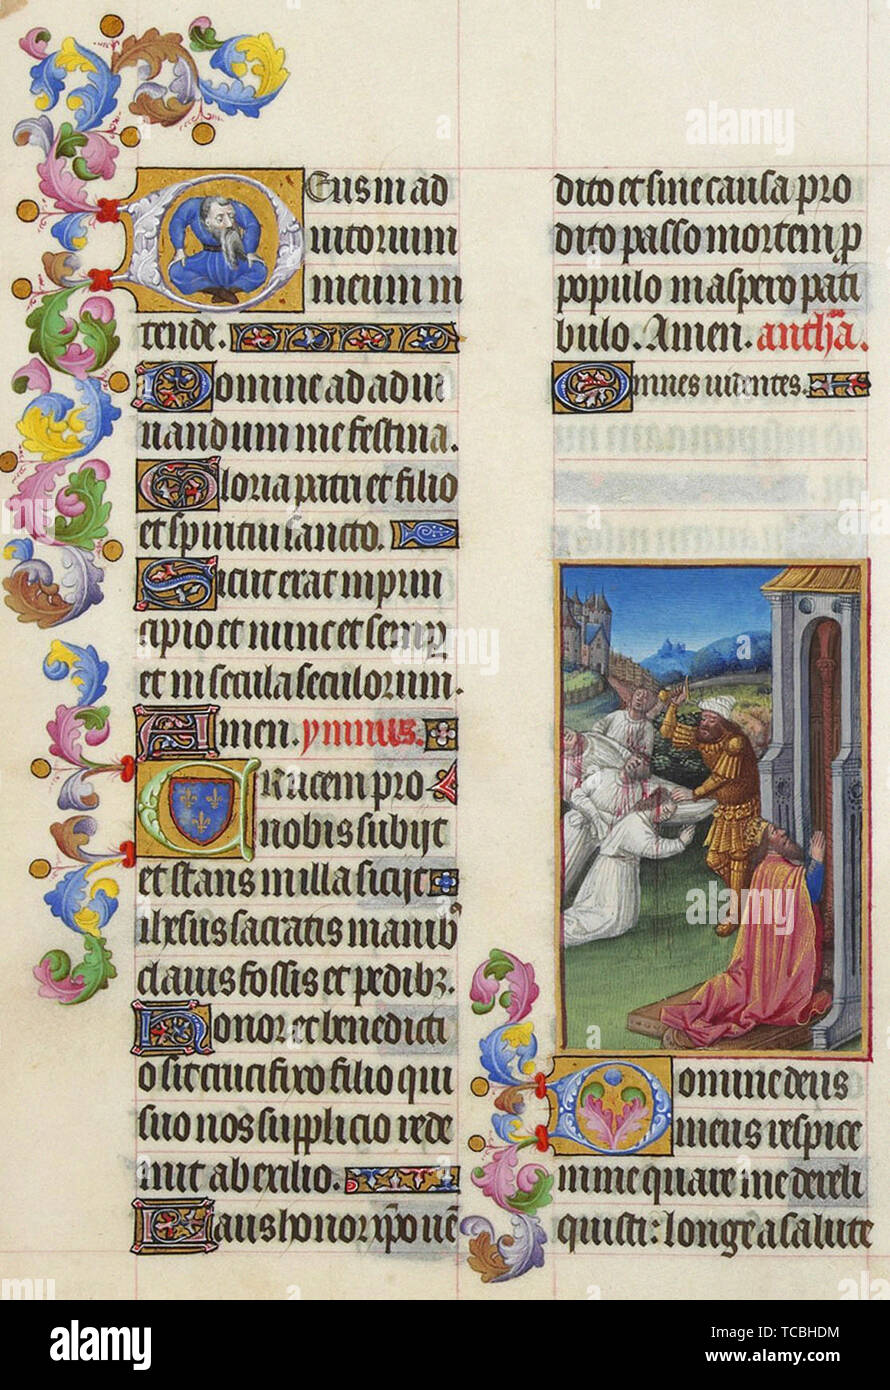 DEus in ad
iutorium
meum in
tende.
Domine ad adiu
uandum me festina.
Gloria patri et filio
et spiritui sancto.
Sicut erat in prin
cipio et nunc et semp̲
et in secula seculorum.
Amen. ymnus.
CRucem pro
nobis subijt
et stans in illa sicijt
ihesus sacratis manibꝰ
clauis fossis et pedibꝫ.
Honor et benedicti
o sit crucifixo filio qui
suo nos supplicio rede
mit ab exilio.
Laus honor xp̄o uē
dito et sine causa pro
dito passo mortem ꝑ
populo in aspero pati
bulo. Amen. anth̄a.
Omnes uidentes.
Domine deus
meus respice
in me quare me dereli
quisti: longe a salute
alamy
alamy
alamy
Image ID: TCBHDM
www.alamy.com